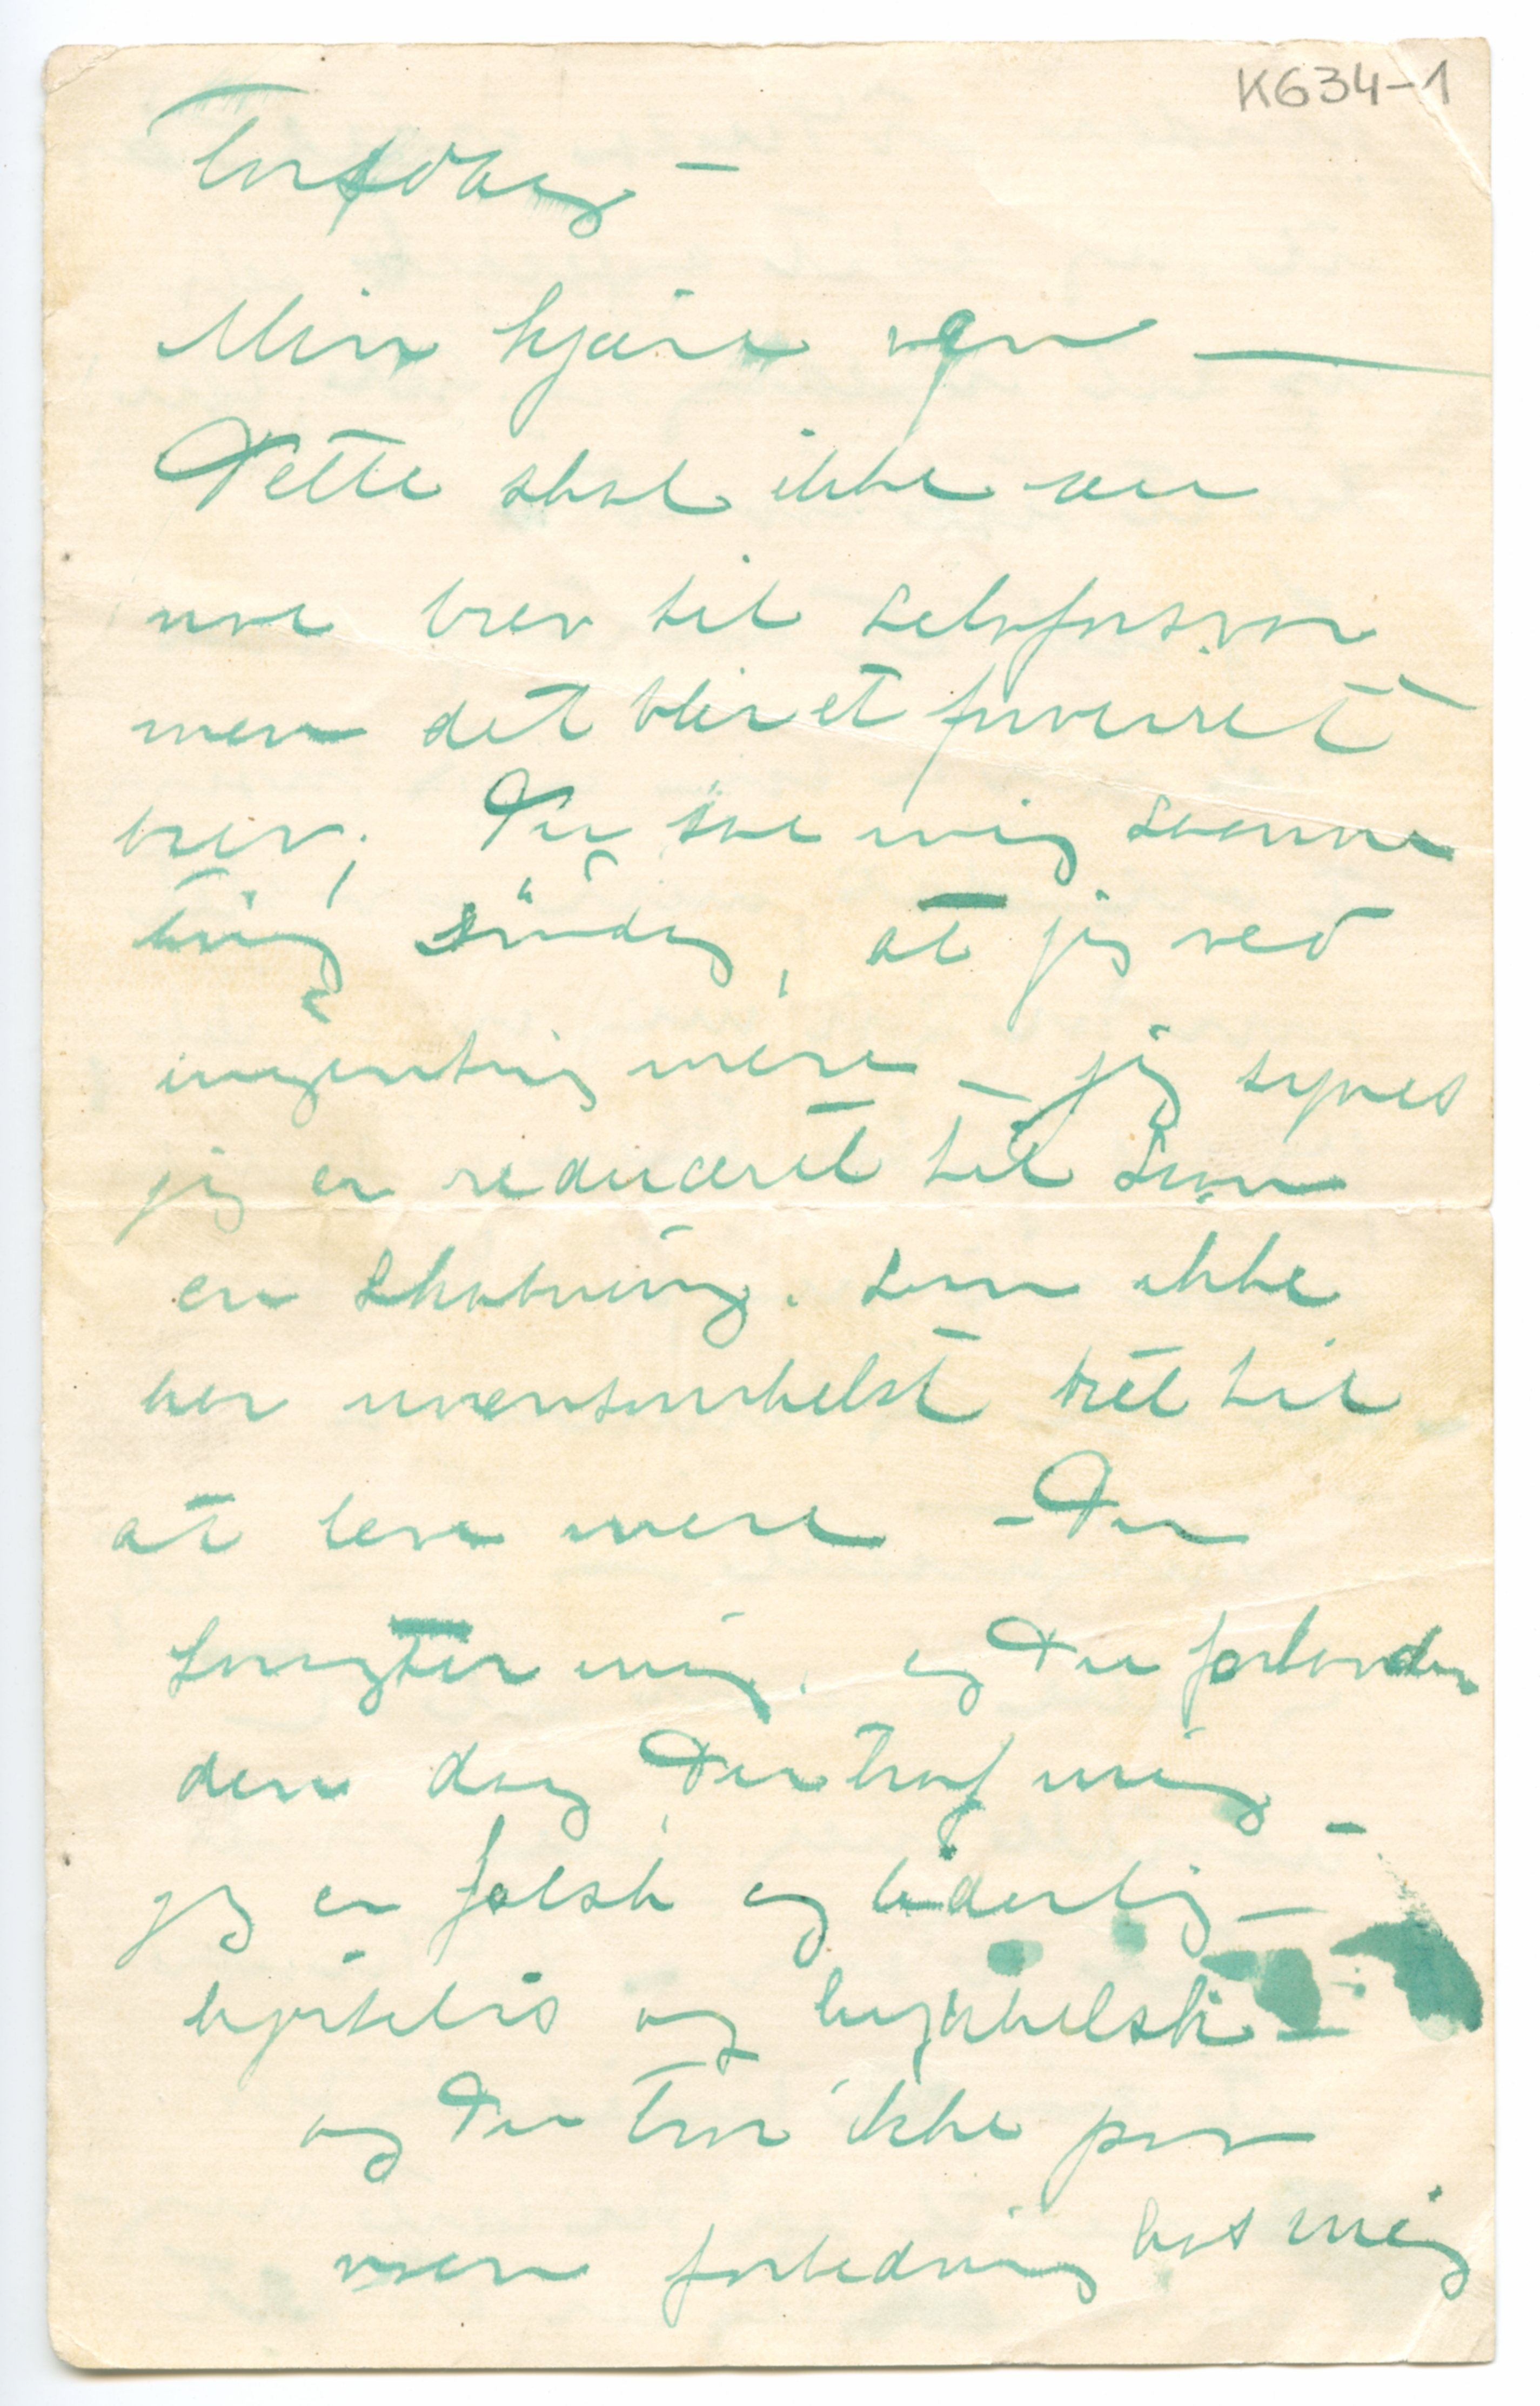 K634-1
Torsdag –
Min kjære ven —
Dette skal ikke være
noe brev til selvforsvar
men det blir et forvirret
brev; Du sae mig saanne
ting søndag, at jeg ved
ingenting mere – jeg synes
jeg er reduceret til som
en skabning. som ikke
har noensomhelst ret til
at leve mere – Du
foragter mig. og Du forbander
den dag Du traf mig –
jeg er falsk og liderlig –
hjerteløs og hykkelsk –
og Du tror ikke paa
noen forbedring hos mig